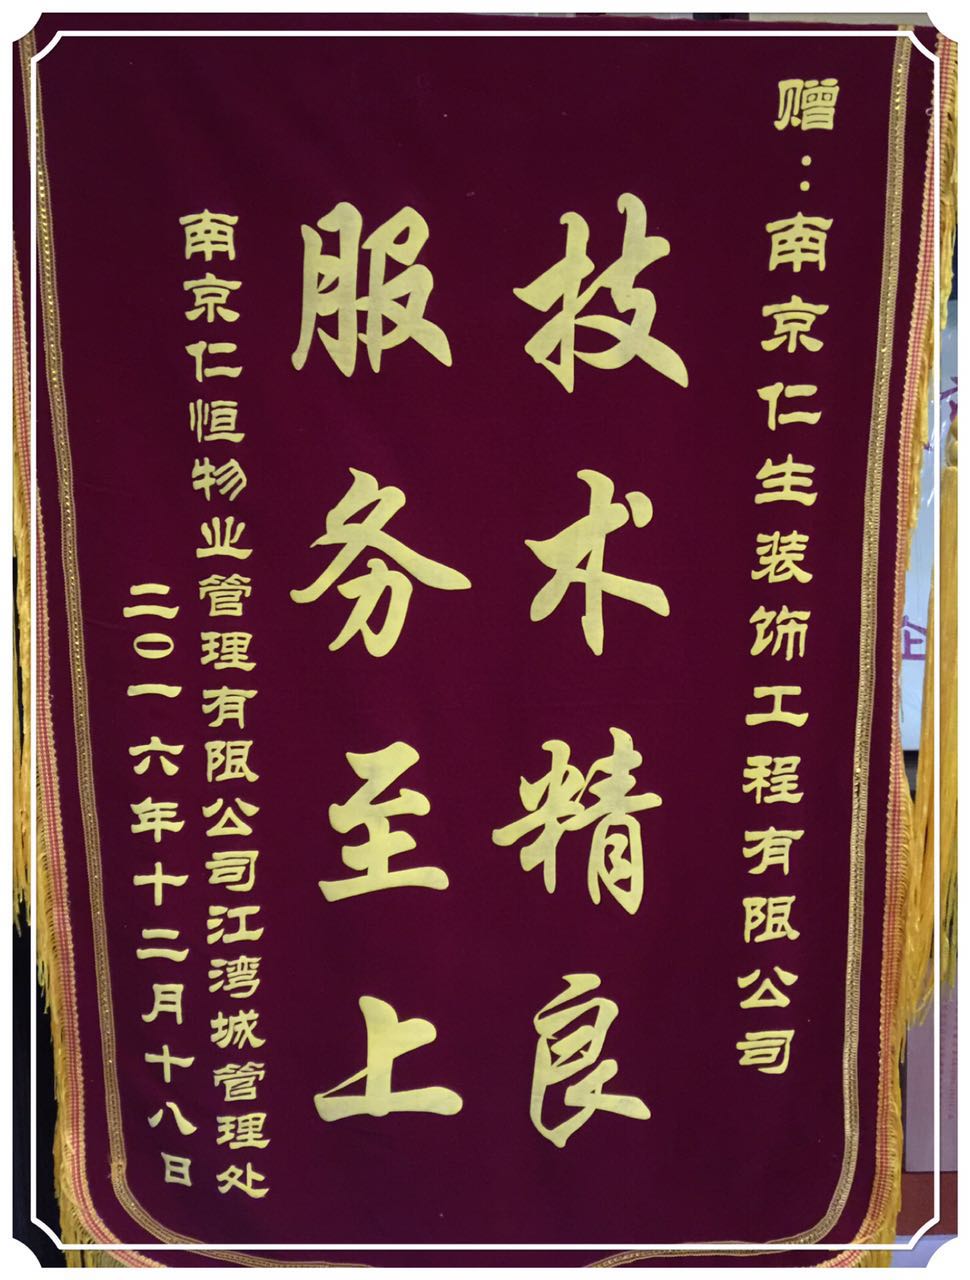 赠：南京仁生装饰工程有限公司
技术精良
服务至上
南京仁恒物业管理有限公司江湾城管理处
二〇一六年十二月十八日